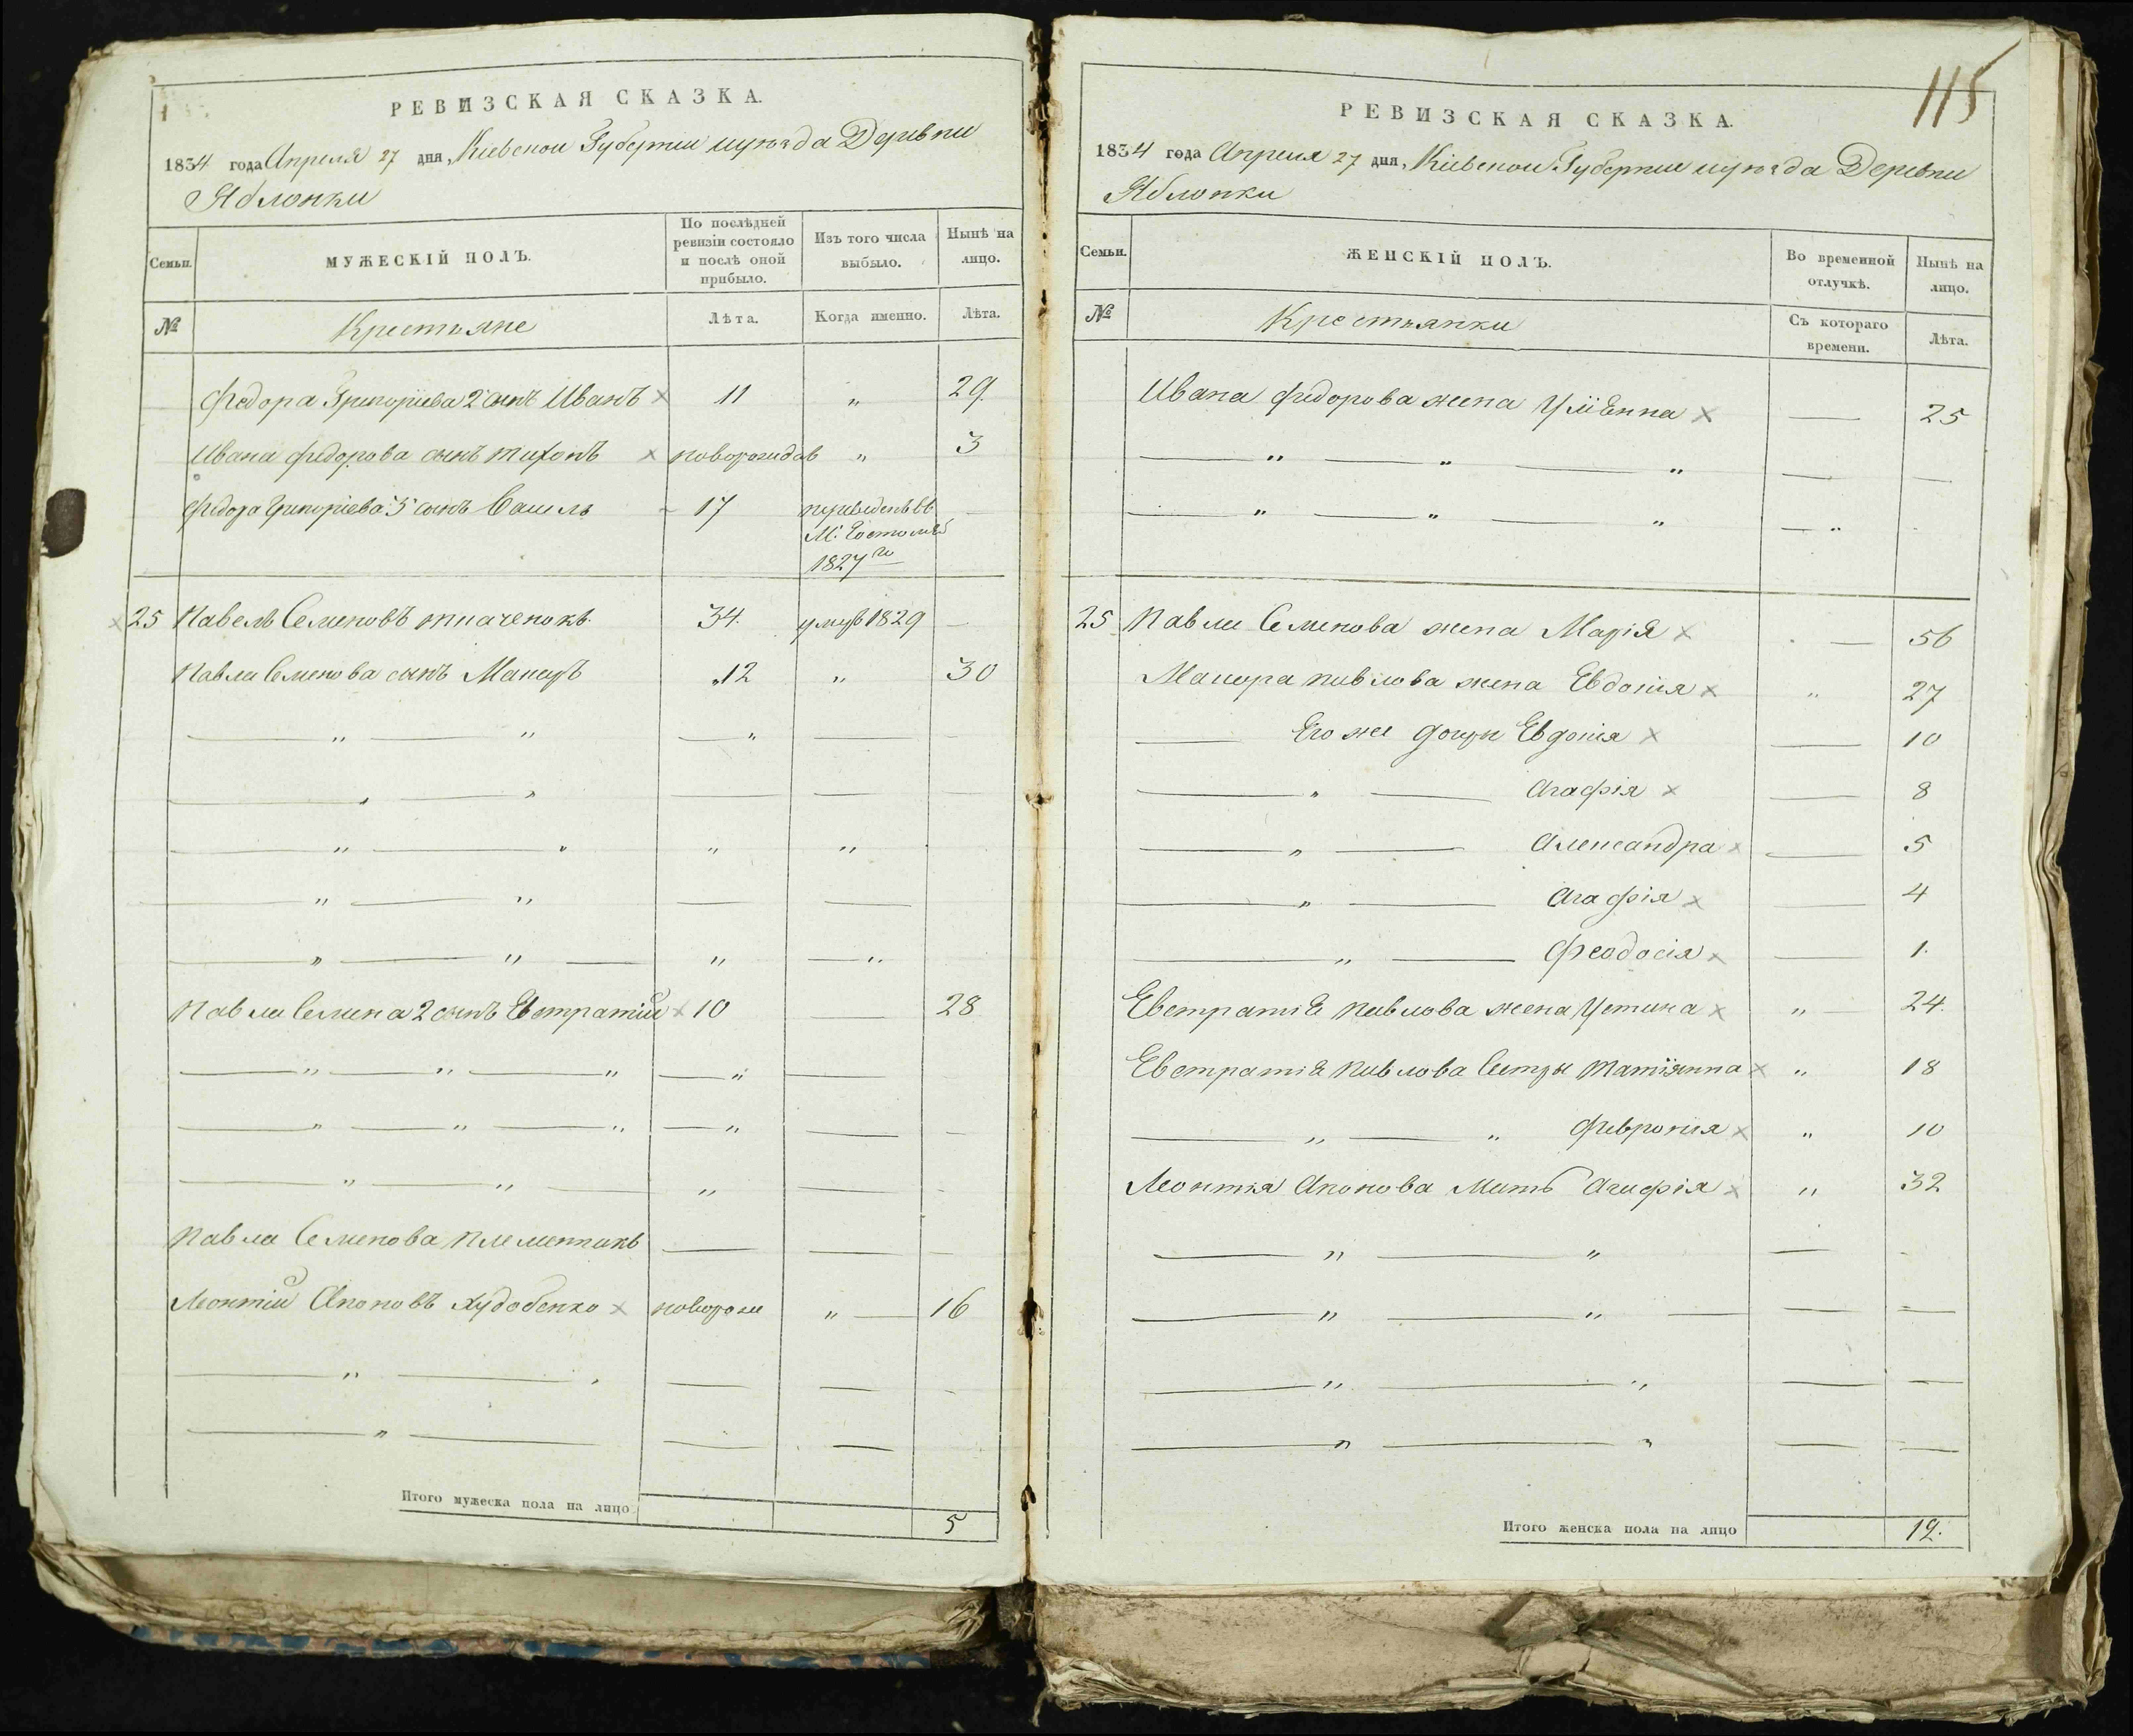 РЕВИЗСКАЯ СКАЗКА.
1834 года Апреля 27 дня, Кіевской Губерніи и уѣзда Деревни
Яблонки
Семьи.
МУЖЕСКІЙ ПОЛЪ.
По послѣдней ревизіи состояло и послѣ оной прибыло.
Изъ того числа выбыло.
Нынѣ на лицо.
№
Крестьяне
Лѣта.
Когда именно.
Лѣта.
Федора Григоріева 2 сынъ Иванъ × 11 „ 29
Ивана Федорова сынъ Тихонъ × новорожден „ 3
Федора Григоріева 5 сынъ 17 переведенъ въ
М. Гостомль
1827го
25 Павелъ Семеновъ Ткаченокъ 34. умеръ 1829 —
Павла Семенова сынъ Макаръ 12 „ 30
Павла Семена 2 сынъ Евстратій × 10 — 28
Павла Семенова племянникъ — — —
Леонтій Худобенко × новорож „ — 16
Итого мужеска пола на лицо 5
115
РЕВИЗСКАЯ СКАЗКА.
1834 года Апреля 27 дня, Кіевской Губерніи и уѣзда Деревни
Яблонки
Семьи.
ЖЕНСКІЙ ПОЛЪ.
Во временной отлучкѣ.
Нынѣ на лицо.
№
Крестьянки
Съ котораго времени.
Лѣта.
Ивана Федорова жена × — 25
25 Павла Семенова жена Марія × — 56
Макара Павлова жена Евдокія × „ 27
Его же дочери Евдокія × — 10
„ — Агафія × — 8
„ — Александра × — 5
„ — Агафія × — 4
„ — Феодосія × — 1.
Евстратія Павлова жена Устина × „ — 24.
Евстратія Павлова Сестры Татіянна × „ 18
„ — „ Февронія × „ 10
Леонтія Мать Агафія × „ 32
Итого женска пола на лицо 12.